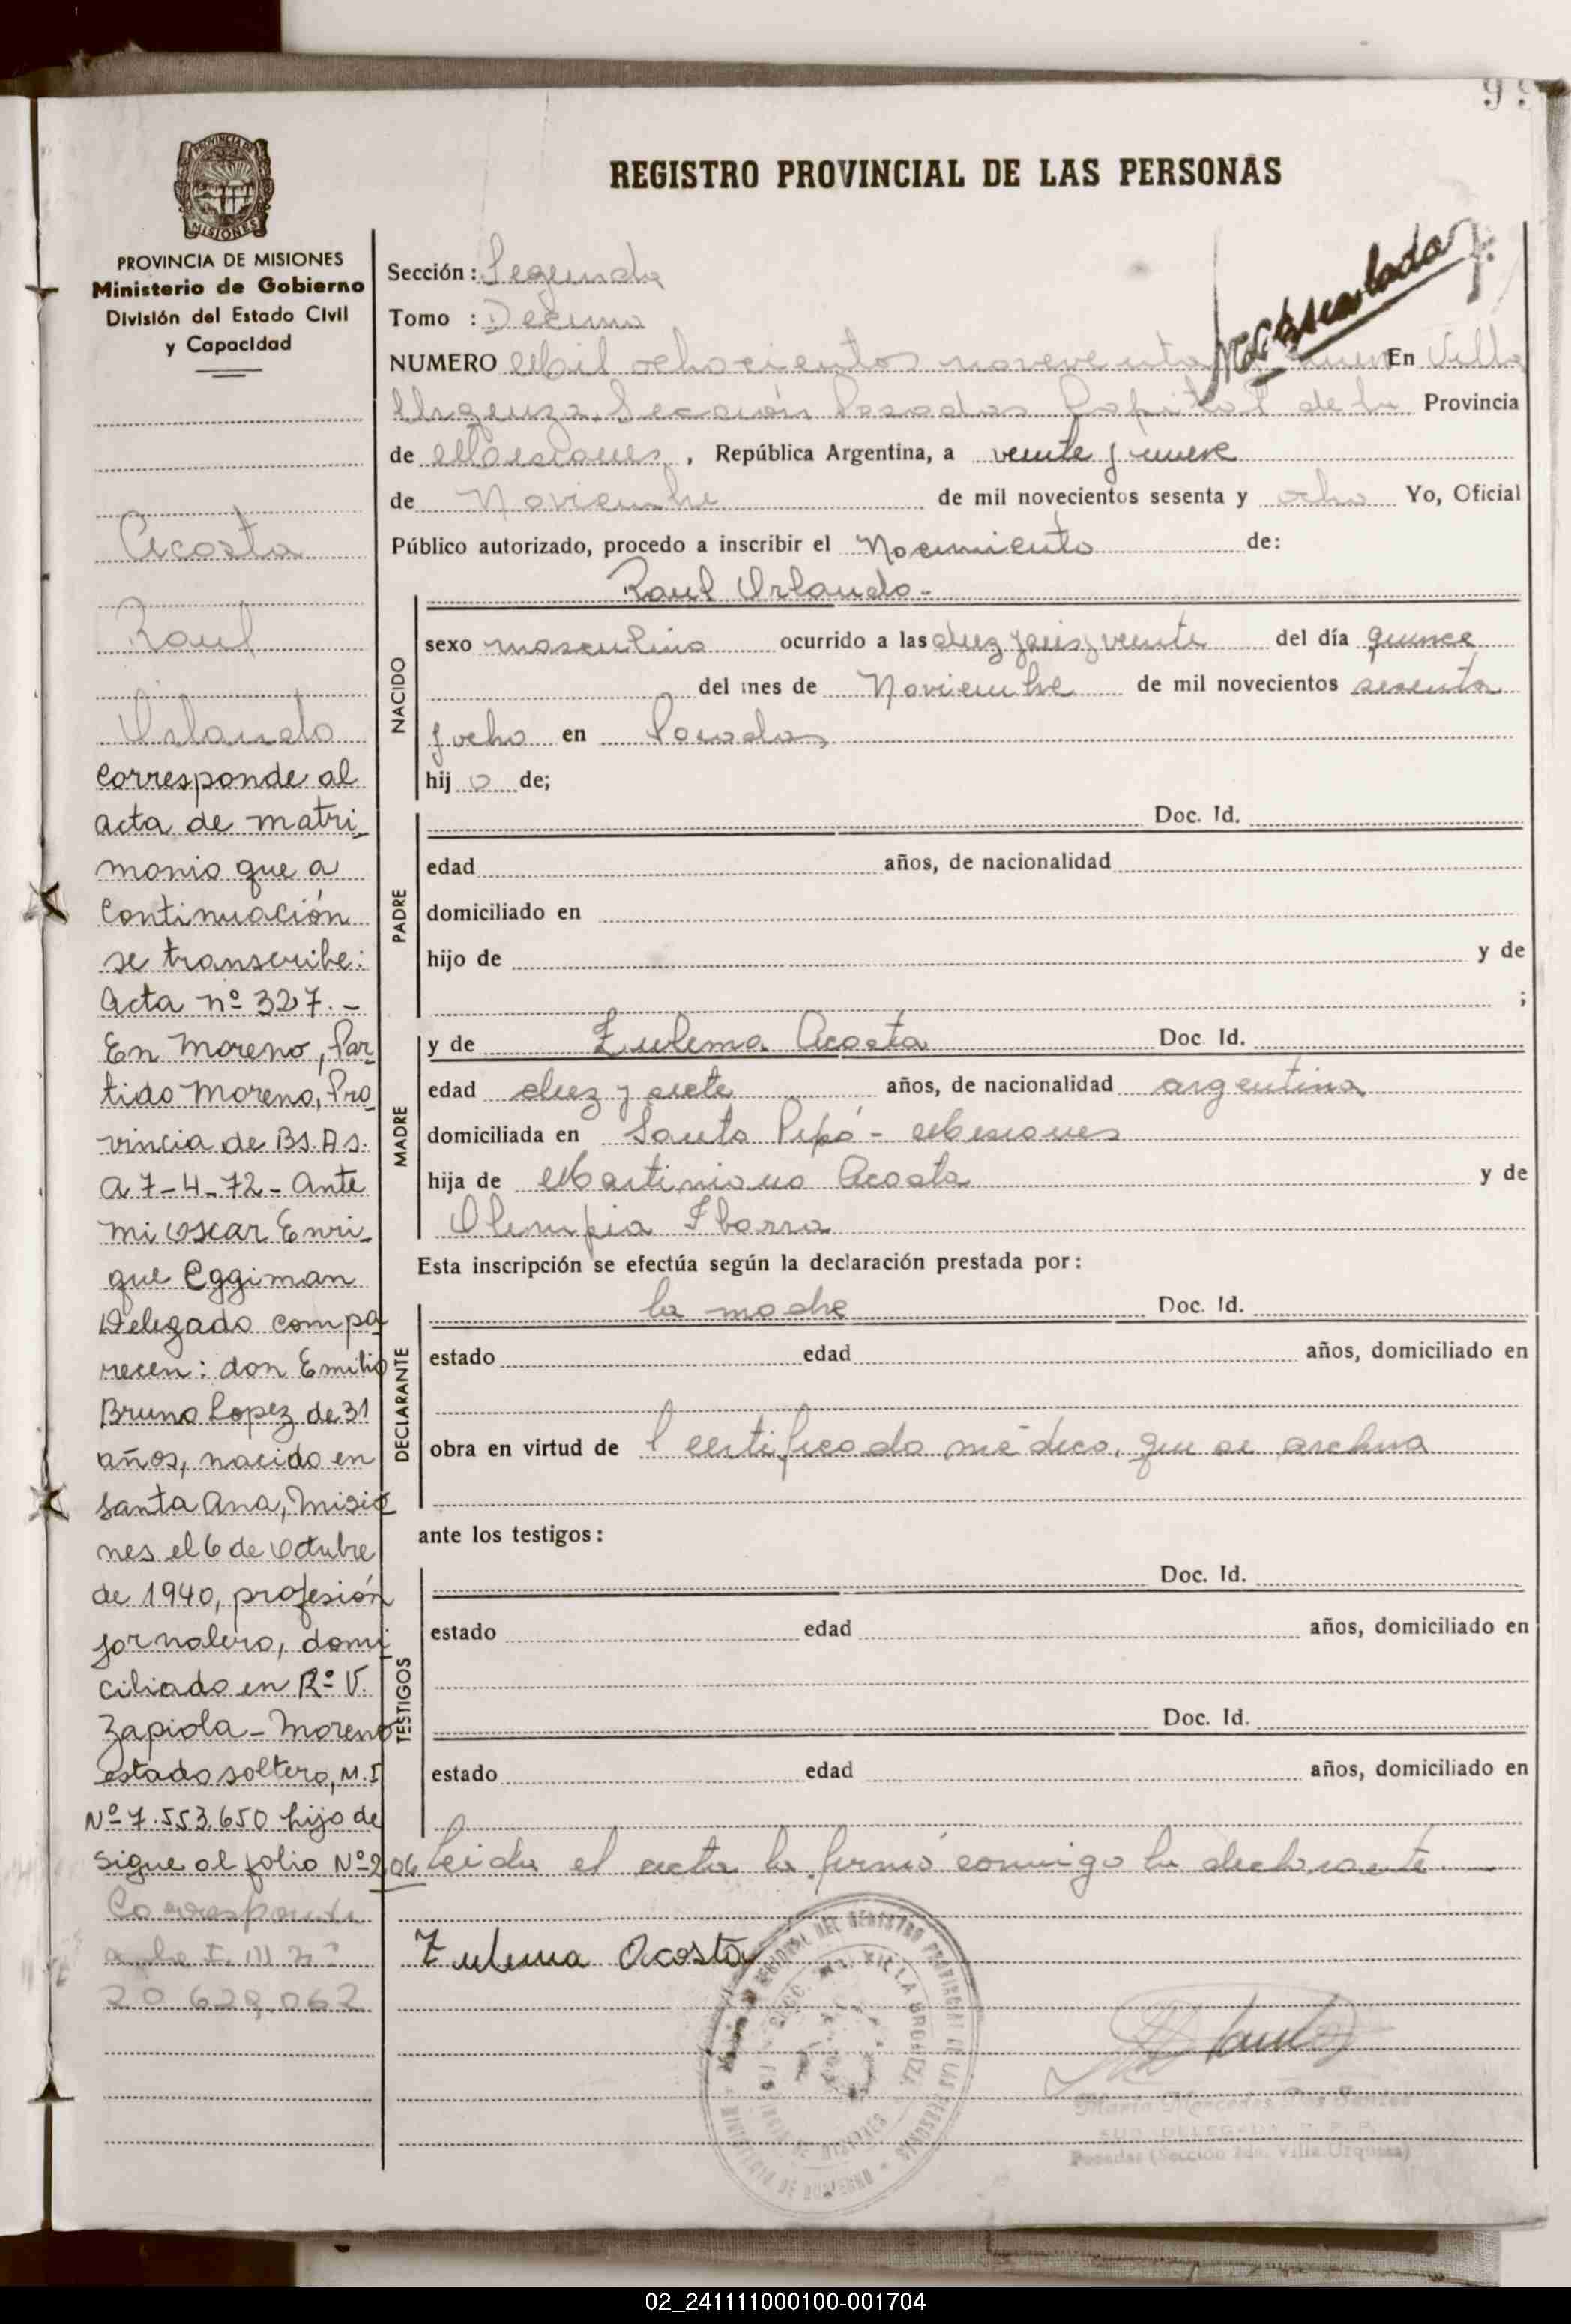 REGISTRO PROVINCIAL DE LAS PERSONAS
PROVINCIA DE MISIONES
MISIONES
PROVINCIA DE MISIONES
Ministerio de Gobierno
División del Estado Civil
y Capacidad
Acosta
Raul
Orlando
Corresponde al
acta de matri-
monio que a
continuación
se transcribe:
Acta nº 327.-
En Moreno, Par-
tido Moreno, Pro-
vincia de Bs. As.
a 7-4-72- Ante
mi Oscar Enri-
que Eggiman
Delegado compa
recen: don Emilio
Bruno Lopez de 31
años, nacido en
Santa Ana, Misio
nes el 6 de Octubre
de 1940, profesión
jornalero, domi
ciliado en Rº V.
Zapiola - Moreno
estado soltero, M.I
Nº 7.553.650 hijo de
Sigue al folio Nº 206
Corresponde
20.629.062
Sección: Segunda
Tomo : Decimo
NUMERO Mil ochocientos noventa En Villa
Urquiza, Sección Posadas Capital de la Provincia
de Misiones, República Argentina, a veinte y nueve
de Noviembre de mil novecientos sesenta y ocho Yo, Oficial
Público autorizado, procedo a inscribir el Nacimiento de:
Raul Orlando-
NACIDO
sexo masculino ocurrido a las diez y seis y veinte del día quince
del mes de Noviembre de mil novecientos sesenta
y ocho en Posadas
hij o de;
PADRE
Doc. Id.
edad años, de nacionalidad
domiciliado en
hijo de y de
;
MADRE
y de Zulema Acosta Doc. Id.
edad diez y siete años, de nacionalidad argentina
domiciliada en Santo Pipó - Misiones
hija de Martiniano Acosta y de
Olimpia Ibarra
Esta inscripción se efectúa según la declaración prestada por:
DECLARANTE
la madre Doc. Id.
estado edad años, domiciliado en
obra en virtud de l certificado médico, que se archiva
ante los testigos:
TESTIGOS
Doc. Id.
estado edad años, domiciliado en
Doc. Id.
estado edad años, domiciliado en
Leida el acta la firmó conmigo la declarante
Zulema Acosta
Maria Mercedes Dos Santos
Posadas (Sección 2da. Villa Urquiza)
02_241111000100-001704